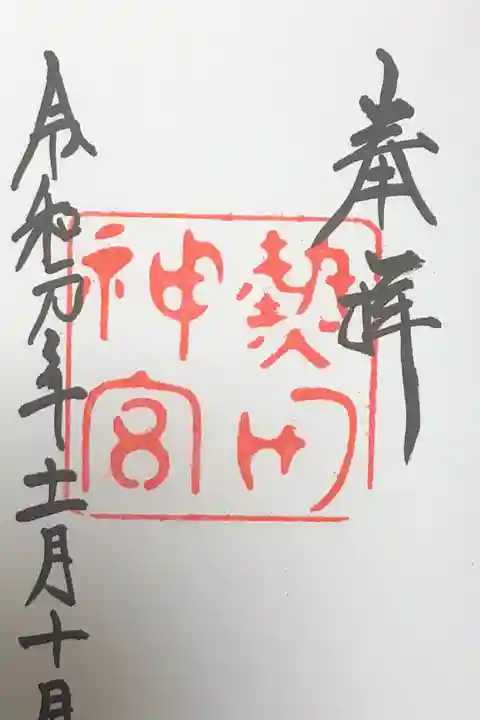 奉拝
熱田
神宮
令和元年十一月十日